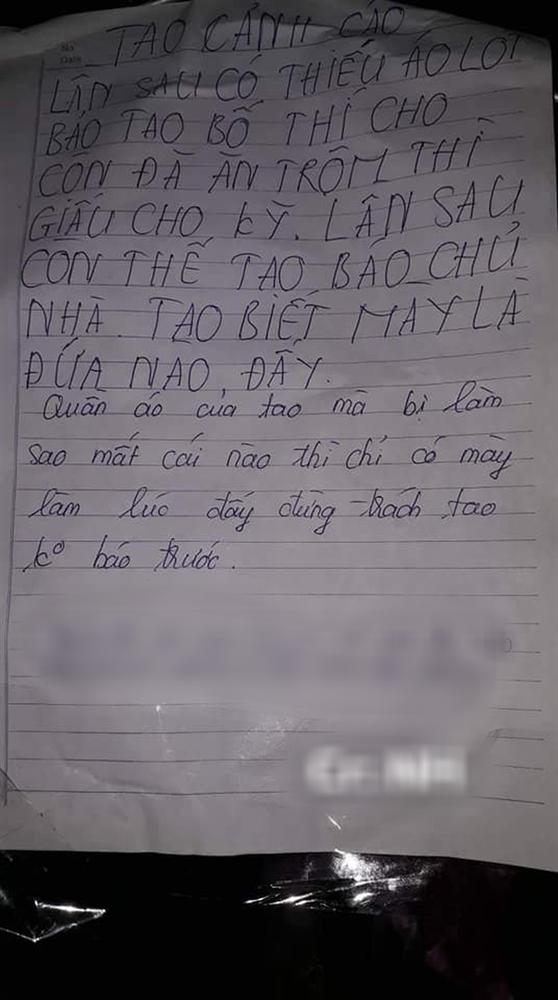 TAO CẢNH CÁO
LẦN SAU CÓ THIẾU ÁO LÓT
BẢO TAO BỐ THÍ CHO
CÒN ĐÃ ĂN TRỘM THÌ
GIẤU CHO KỸ. LẦN SAU
CÒN THẾ TAO BÁO CHỦ
NHÀ. TAO BIẾT MÀY LÀ
ĐỨA NÀO ĐẤY.
Quần áo của tao mà bị làm
sao mất cái nào thì chỉ có mày
làm lúc đấy đừng trách tao
k° báo trước.